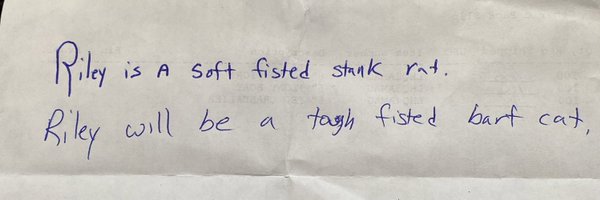 Riley is A soft fisted stank rat.
Riley will be a tough fisted barf cat.